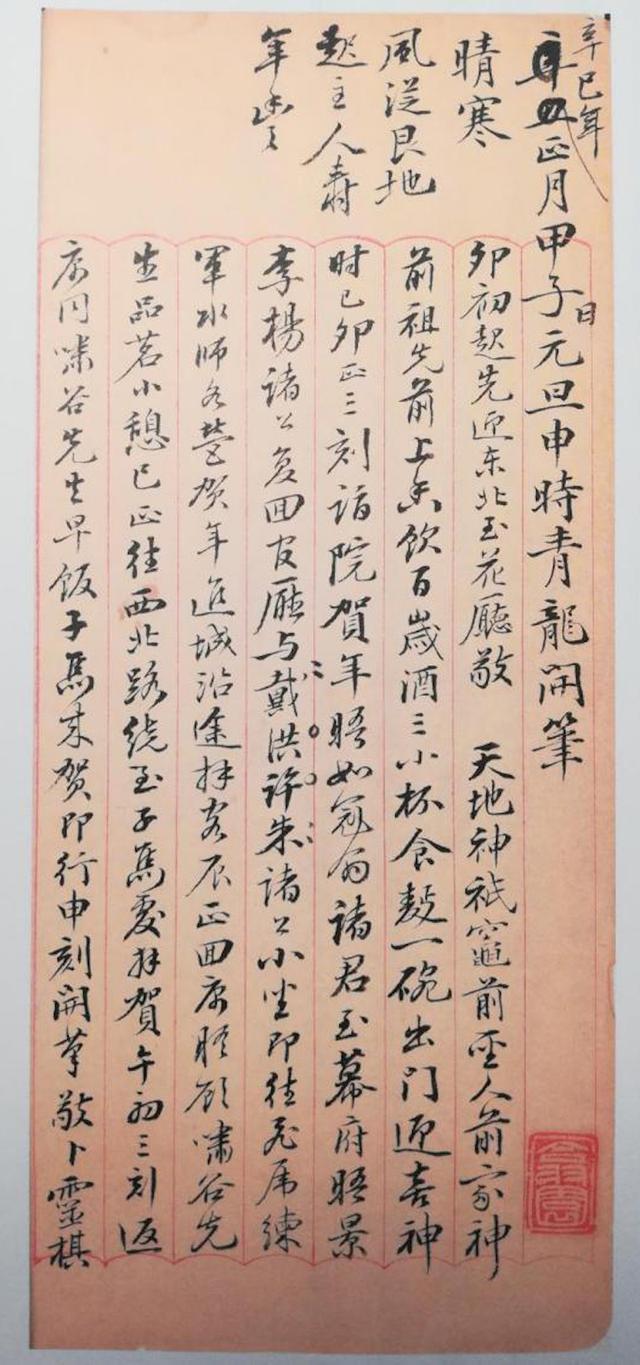 辛巳年
正月甲子日元旦申時青龍開筆
晴寒
風從艮地
起主人壽
年豐
卯初起先迎东北至花廳敬 天地神祇竈前聖人前家神
前祖先前上香飲百歲酒三小杯食麪一碗出门迎喜神
时已卯正三刻詣院賀年晤如冠翁諸君至幕府晤景
李楊諸公复回官廳与戴洪許朱諸公小坐即往虎席練
軍水师各营贺年進城沿途拜客辰正回寓晤顾嘯谷先
生品茗小憩巳正往西北路绕至子馬處拜賀午初三刻返
寓同嘯谷先生早饭子馬来贺即行申刻開筆敬卜靈棋